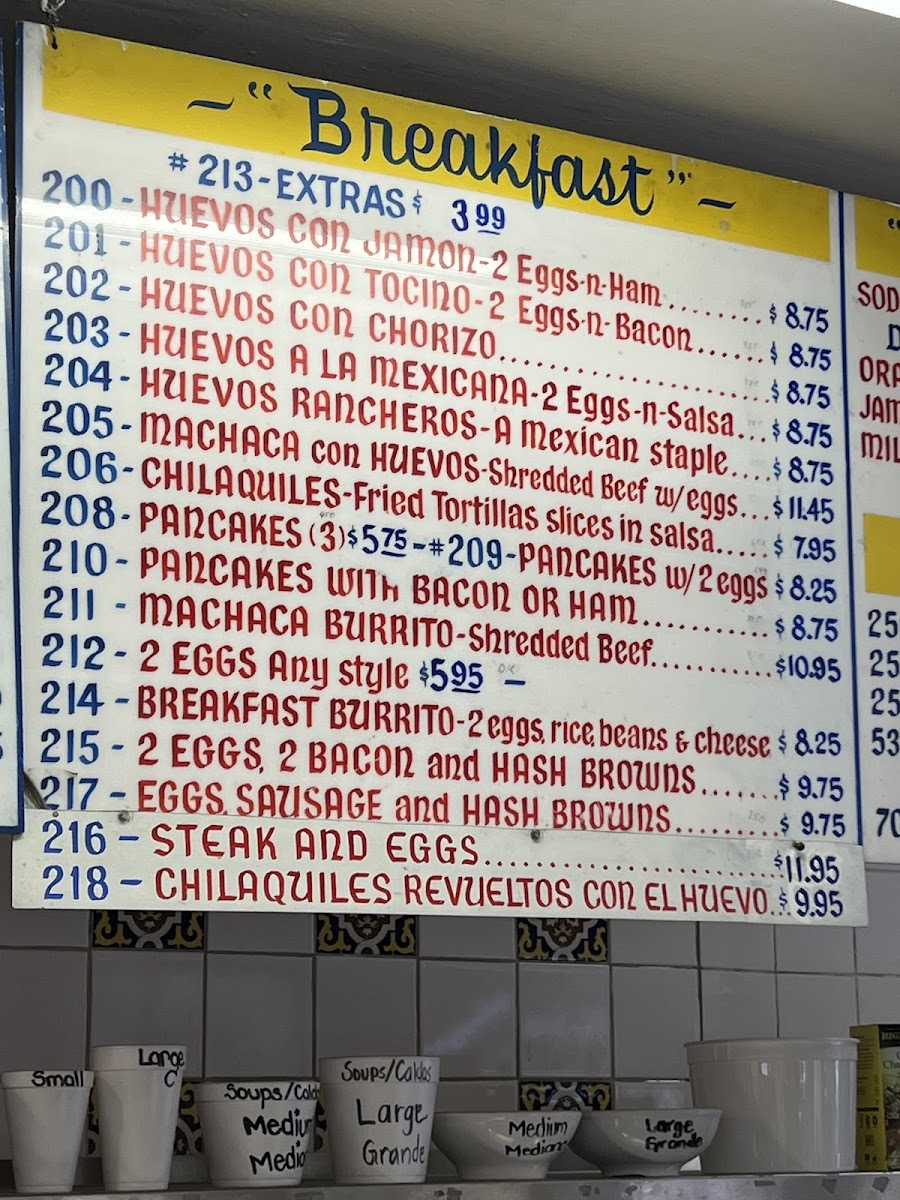 ~"Breakfast"~
#213-EXTRAS $ 3.99
200-HUEVOS CON JAMON-2 Eggs-n-Ham........$ 8.75
201-HUEVOS CON TOCINO-2 Eggs-n-Bacon......$ 8.75
202-HUEVOS CON CHORIZO......................$ 8.75
203-HUEVOS A LA MEXICANA-2 Eggs-n-Salsa...$ 8.75
204-HUEVOS RANCHEROS-A Mexican staple....$ 8.75
205-MACHACA con HUEVOS-Shredded Beef w/eggs...$ 11.45
206-CHILAQUILES-Fried Tortillas slices in salsa.....$ 7.95
208-PANCAKES (3)$5.75-#209-PANCAKES w/2 eggs $ 8.25
210-PANCAKES WITH BACON OR HAM...........$ 8.75
211-MACHACA BURRITO-Shredded Beef.........$10.95
212-2 EGGS Any style $5.95 -
214-BREAKFAST BURRITO-2 eggs, rice, beans & cheese $ 8.25
215-2 EGGS, 2 BACON and HASH BROWNS.......$ 9.75
217-EGGS, SAUSAGE and HASH BROWNS.........$ 9.75
216-STEAK AND EGGS.......................$11.95
218-CHILAQUILES REVUELTOS CON EL HUEVO...$ 9.95
25
25
25
53
70
Small
Large
C
Soups/Caldos
Large
Grande
Medium
Large
Grande